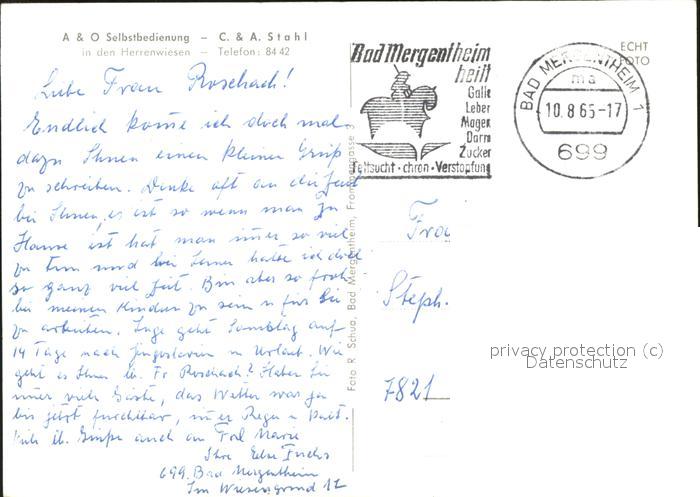 A & O Selbstbedienung – C. & A. Stahl
in den Herrenwiesen – Telefon: 84 42
Liebe Frau Roschach!
Endlich komme ich doch mal
dazu Ihnen einen kleinen Gruß
zu schreiben. Denke oft an die Zeit
bei Ihnen, es ist so wenn man zu
Hause ist hat man immer so viel
zu tun und bei Ihnen hatte ich doch
so ganz viel Zeit. Bin aber so froh
bei meinen Kindern zu sein u für Sie
zu arbeiten. Inge geht Samstag auf
14 Tage nach Jugoslavien in Urlaub. Wie
geht es Ihnen lb. Fr Roschach? Haben Sie
immer viele Gäste, das Wetter war ja
bis jetzt furchtbar, immer Regen u kalt.
Viele lb. Grüße auch an Frl Marie
Ihre Else Fuchs
699 Bad Mergentheim
Im Wiesengrund 12
Foto R. Schua, Bad Mergentheim, Frommengasse
Bad Mergentheim
heilt
Galle
Leber
Magen
Darm
Zucker
Fettsucht · chron · Verstopfung
BAD MERGENTHEIM 1
ma
10.8.65-17
699
ECHT
FOTO
Frau
Steph.
7821
privacy protection (c)
Datenschutz